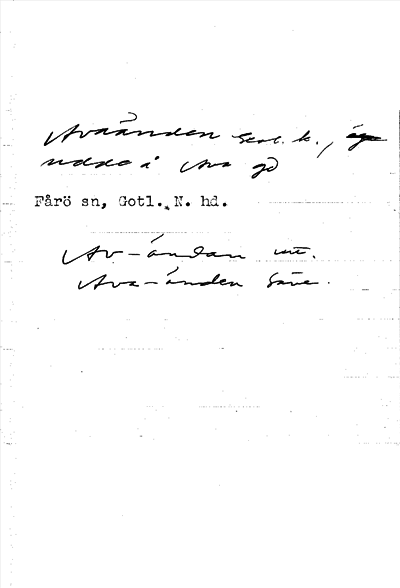 Avaänden Geol. k.,
udde i Ava gd
Fårö sn, Gotl. N. hd.
Av-ändan utt.
Ava-änden Säve.